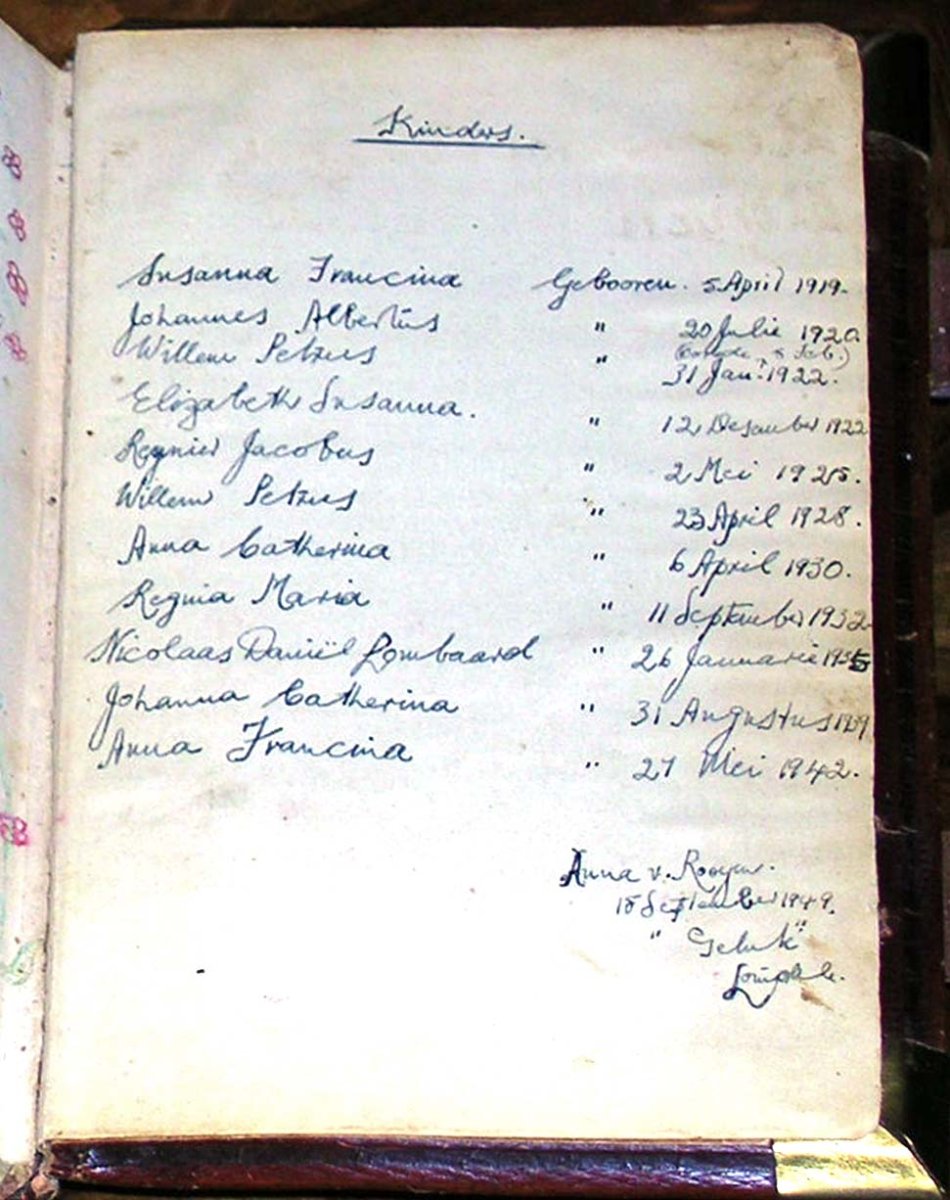 Kinders.
Susanna Francina Gebooren. 5 April 1919.
Johannes Albertus " 20 Julie 1920.
Willem Petrus " 31 Jan. 1922.
Elizabeth Susanna. " 12 Desember 1922
Regnier Jacobus " 2 Mei 1925.
Willem Petrus " 23 April 1928.
Anna Catherina " 6 April 1930.
Regnia Maria " 11 September 1932
Nicolaas Daniël Lombaard " 26 Jannarie
Johanna Catherina " 31 Augustus
Anna Francina " 27 Mei 1942.
Anna v. Rooyen.
September 1949.
" Geluk"